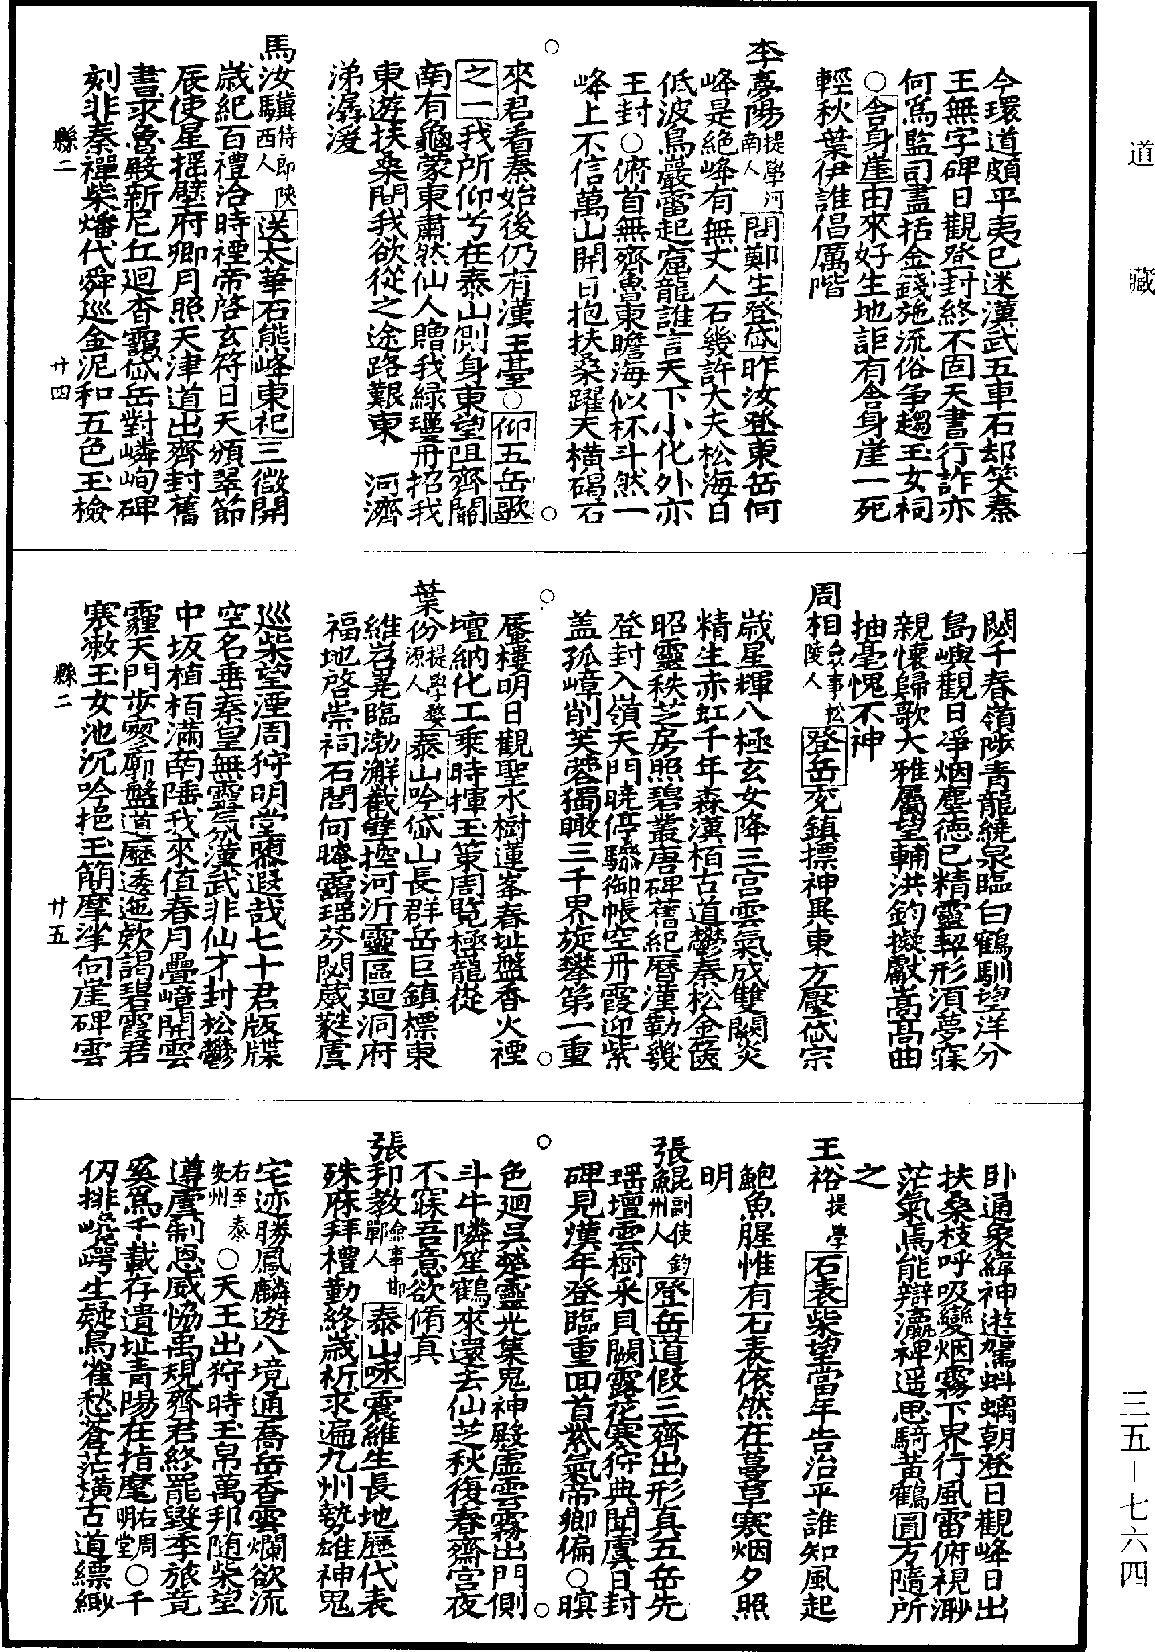 道藏
今環道頗平夷已迷漢武五車石却笑秦
王無字碑日觀登封終不固天書行詐亦
何爲監司盡括金錢施流俗争趨玉女祠
○舍身崖由來好生地詎有舍身崖一死
輕秋葉伊誰倡厲階
李夢陽提學河南人問鄭生登岱昨汝登東岳何
峰是絶峰有無丈人石幾許大夫松海日
低波鳥巖雷起窟龍誰言天下小化外亦
王封○俯首無齊魯東瞻海似杯斗然一
峰上不信萬山開日抱扶桑躍天橫碣石
來君看秦始後仍有漢王臺○仰五岳歌
之一我所仰兮在泰山側身東望阻齊關
南有龜蒙東肅然仙人贈我綠瓊丹招我
東遊扶桑間我欲從之途路艱東 河濟
涕潺湲
馬汝驥侍郎陝西人送太華石熊峰東祀三微開
歲紀百禮洽時禋帝啓玄符日天頒翠節
辰使星摇壁府卿月照天津道出齊封舊
書求魯殿新尼丘迴杳靄岱岳對嶙峋碑
刻非秦禪柴燔代舜巡金泥和五色玉檢
縣二 廿四
閟千春嶺陟青龍繞泉臨白鶴馴望洋分
島嶼觀日凈烟塵德已精靈契形湏夢寐
親懷歸歌大雅屬望輔洪鈞擬獻嵩高曲
抽毫愧不神
周相僉事松陵人登岳兖鎮摽神異東方壓岱宗
歲星輝八極玄女降三宫雲氣成雙闕炎
精生赤虹千年森漢栢古道鬱秦松金匱
昭靈秩芝房照碧叢唐碑舊紀曆漢勒幾
登封入嶺天門曉停驂御帳空丹霞迎紫
盖孤嶂削芙蓉獨瞰三千界旋攀第一重
蜃樓明日觀聖水樹蓮峯春址盤香火禋
壇納化工乘時揮玉策周覧極龍從
葉份提學婺源人泰山吟岱山長群岳巨鎮標東
維岩晃臨渤澥截嶪控河沂靈區迴洞府
福地啓崇祠石閭何晻靄瑶芬閟葳蕤虞
巡柴望湮周狩明堂隳遐哉七十君版牒
空名垂秦皇無靈氣漢武非仙才封松鬱
中坂植栢滿南陲我來值春月疊嶂開雲
霾天門步寥廓盤道歷逶迤欵謁碧霞君
寒漱玉女池沉吟挹玉簡摩挲向崖碑雲
縣二 廿五
卧通象緯神遊駕蚪螭朝登日觀峰日出
扶桑枝呼吸變烟霧下界行風雷俯視渺
茫氣焉能辯瀛裨遥思騎黃鶴圓方隨所
之
王裕提學石表柴望當年告治平誰知風起
鮑魚腥惟有石表依然在蔓草寒烟夕照
明
張鯤副使鈞州人登岳道假三齊出形真五岳先
瑶壇雲樹釆貝闕露花寒狩典聞虞日封
碑見漢年登臨重面首紫氣帝鄉偏○瞑
色迴吴楚靈光集鬼神殿虛雲霧出門側
斗牛隣笙鶴來還去仙芝秋復春齋宫夜
不寐吾意欲脩真
張邦教僉事邯鄲人泰山咏震維生長地歷代表
殊庥拜禮勤終歲祈求遍九州勢雄神鬼
宅迹勝鳳麟遊八境通喬岳香雲爛欲流
右至泰安州○天王出狩時玉帛萬邦随柴望
遵虞制恩威恊禹規齊君終罷毀季旅竟
奚爲千載存遺址青陽在指麾右周明堂○千
仭排嶢崿生疑鳥雀愁蒼茫橫古道縹緲
三五—七六四